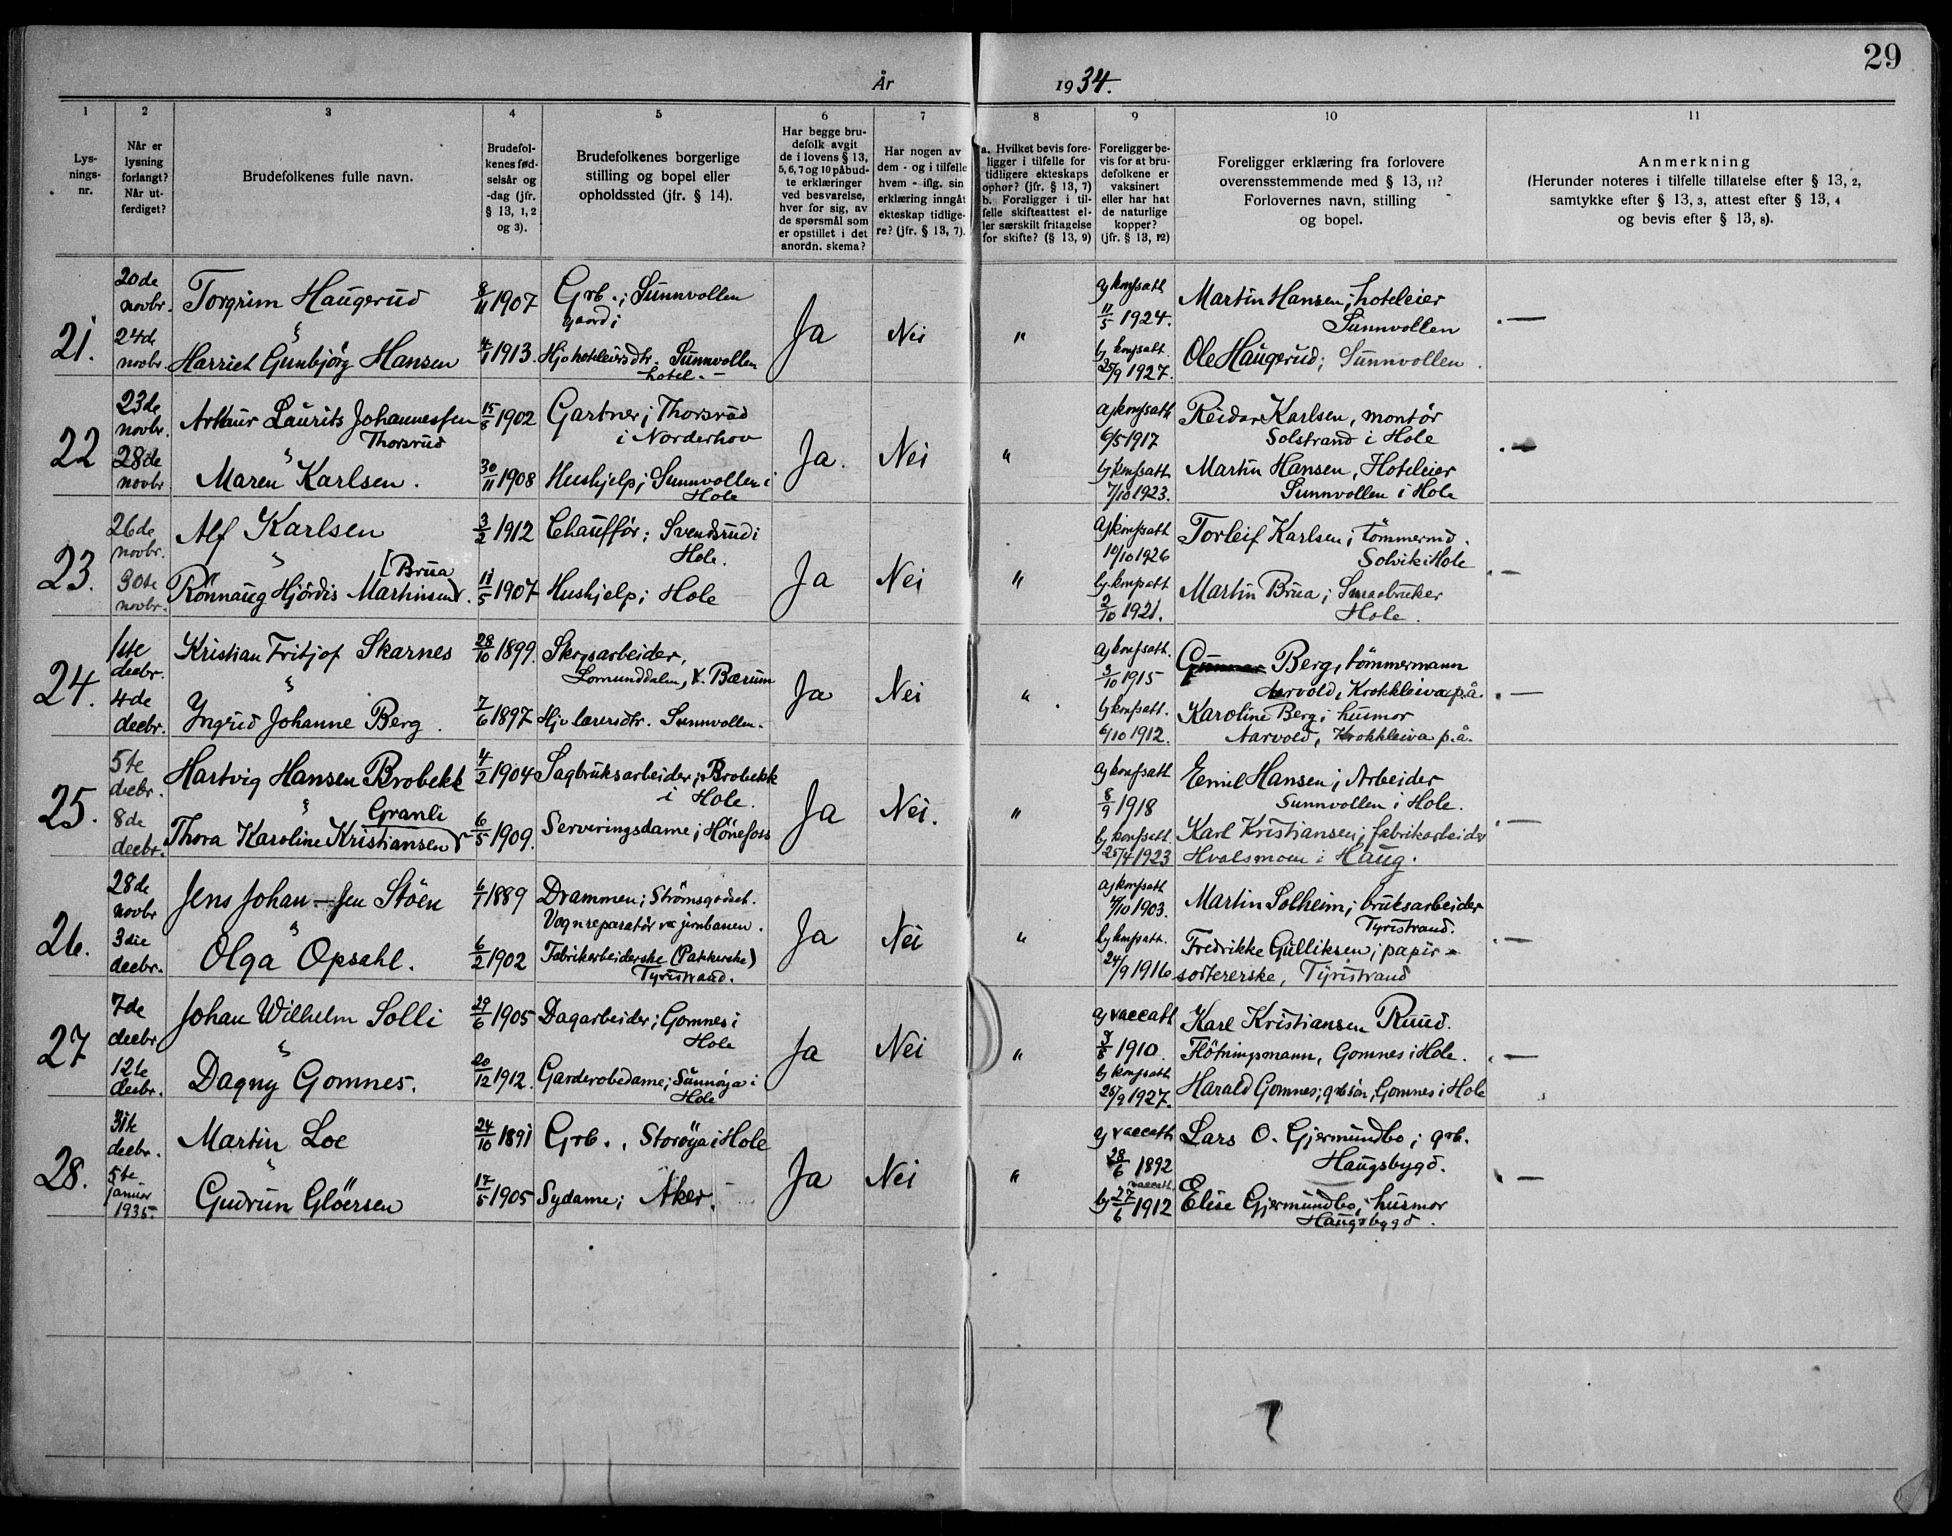 29
År 1934.
1 2 3 4 5 6 7 8 9 10 11
Lysnings-nr.
Når er lysning forlangt? Når utferdiget?
Brudefolkenes fulle navn.
Brudefolkenes fødselsår og -dag (jfr. § 13, 1, 2 og 3).
Brudefolkenes borgerlige stilling og bopel eller opholdssted (jfr. § 14).
Har begge brudefolk avgit de i lovens § 13, 5, 6, 7 og 10 påbudte erklæringer ved besvarelse, hver for sig, av de spørsmål som er opstillet i det anordn. skema?
Har nogen av dem - og i tilfelle hvem - iflg. sin erklæring inngått ekteskap tidligere? (jfr. § 13, 7).
a. Hvilket bevis foreligger i tilfelle for tidligere ekteskaps ophør? (jfr. § 13, 7)
b. Foreligger i tilfelle skifteattest eller særskilt fritagelse for skifte? (§ 13, 9)
Foreligger bevis for at brudefolkene er vaksinert eller har hat de naturlige kopper? (jfr. § 13, 12)
Foreligger erklæring fra forlovere overensstemmende med § 13, 11? Forlovernes navn, stilling og bopel.
Anmerkning
(Herunder noteres i tilfelle tillatelse efter § 13, 2, samtykke efter § 13, 3, attest efter § 13, 4 og bevis efter § 13, 8).
21. 20de novbr. Torgrim Haugerud 8/11 1907 Grb.; Sunnvollen gaard; Ja Nei " a) konfsatt 11/5 1924. Martin Hansen; hoteleier Sunnvollen —
24de novbr. Harriet Gunbjörg Hansen 4/1 1913. Hjv hoteleiersdtr. Sunnvollen hotel. - b) konfsatt. 25/9 1927. Ole Haugerud; Sunnvollen
22 23de novbr. Arthur Laurits Johannessen Thorsrud 15/5 1902 Gartner; Thorsrud i Norderhov Ja. Nei " a) konfsatt 6/5 1917 Reidar Karlsen, montör Solstrand i Hole —
28de novbr Maren Karlsen. 30/11 1908 Hushjelp; Sunnvollen i Hole b) konfsatt 7/10 1923. Martin Hansen, Hoteleier Sunnvollen i Hole
23. 26de novbr. Alf Karlsen 3/2 1912 Chauffør; Svendsrud i Hole. Ja Nei " a) konfsatt 10/10 1926 Torleif Karlsen; tömmermd. Solvik i Hole —
30te novbr. Rönnaug Hjördis Martinsen [Brua 11/5 1907 Hushjelp; Hole b) konfsatt 2/10 1921. Martin Brua; Smaabruker Hole.
24. 1ste decbr. Kristian Fritjof Skarnes 28/10 1899. Skogsarbeider, Lomunddalen, V. Bærum Ja Nei " a) konfsatt. 3/10 1915 Gunnar Berg, tömmermann Aarvold, Krokkleiva p.å. —
4de decbr. Yngrid Johanne Berg. 7/6 1897 Hjv lærersdtr. Sunnvollen. b) konfsatt. 6/10 1912. Karoline Berg; husmor Aarvold, Krokkleiva p.å.
25. 5te decbr. Hartvig Hansen Brobekk 4/2 1904 Sagbruksarbeider; Brobekk i Hole. Ja Nei. " a) konfsatt 8/9 1918 Emil Hansen; Arbeider Sunnvollen i Hole. —
8de decbr. Thora Karoline Kristiansen Granli 6/5 1909. Serveringsdame; Hönefoss b) konfsatt. 25/4 1923 Karl Kristiansen; fabrikarbeider Hvalsmoen i Haug.
26. 28de novbr Jens Johan-sen Stöen 6/1 1889 Drammen; Strömsgodset. Vognreparatör ve jernbanen. Ja Nei " a) konfsatt 4/10 1903. Martin Solheim; bruksarbeider Tyristrand. —
3die decbr. Olga Opsahl. 6/2 1902 Fabrikarbeiderske (Pakkerske) Tyristrand. b) konfsatt. 24/9 1916 Fredrikke Gulliksen; papir-sortererske, Tyristrand
27 7de decbr. Johan Wilhelm Solli 29/6 1905 Dagarbeider; Gomnes i Hole Ja Nei " a) vaccatt 3/8 1910. Karl Kristiansen Ruud. Flötningsmann, Gomnes i Hole. —
12te decbr. Dagny Gomnes. 20/12 1912. Garderobedame; Sunnöya i Hole b) konfsatt 25/9 1927. Harald Gomnes; grbsön, Gomnes i Hole
28. 31te decbr. Martin Loe 24/10 1891 Grb., Storöya i Hole Ja Nei " a) vaccatt 28/6 1892 Lars O. Gjermundbo; grb. Haugsbygd. —
5te januar 1935. Gudrun Glöersen 17/5 1905 Sydame; Aker. b) 27/6 vaccatt. 1912 Elise Gjermundbo; husmor Haugsbygd.